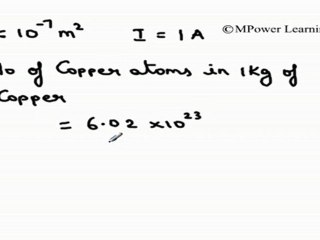 = 10⁻⁷ m² I = 1 A ©MPower Learni
o of Copper atoms in 1Kg of
Copper
= 6.02 ×10²³